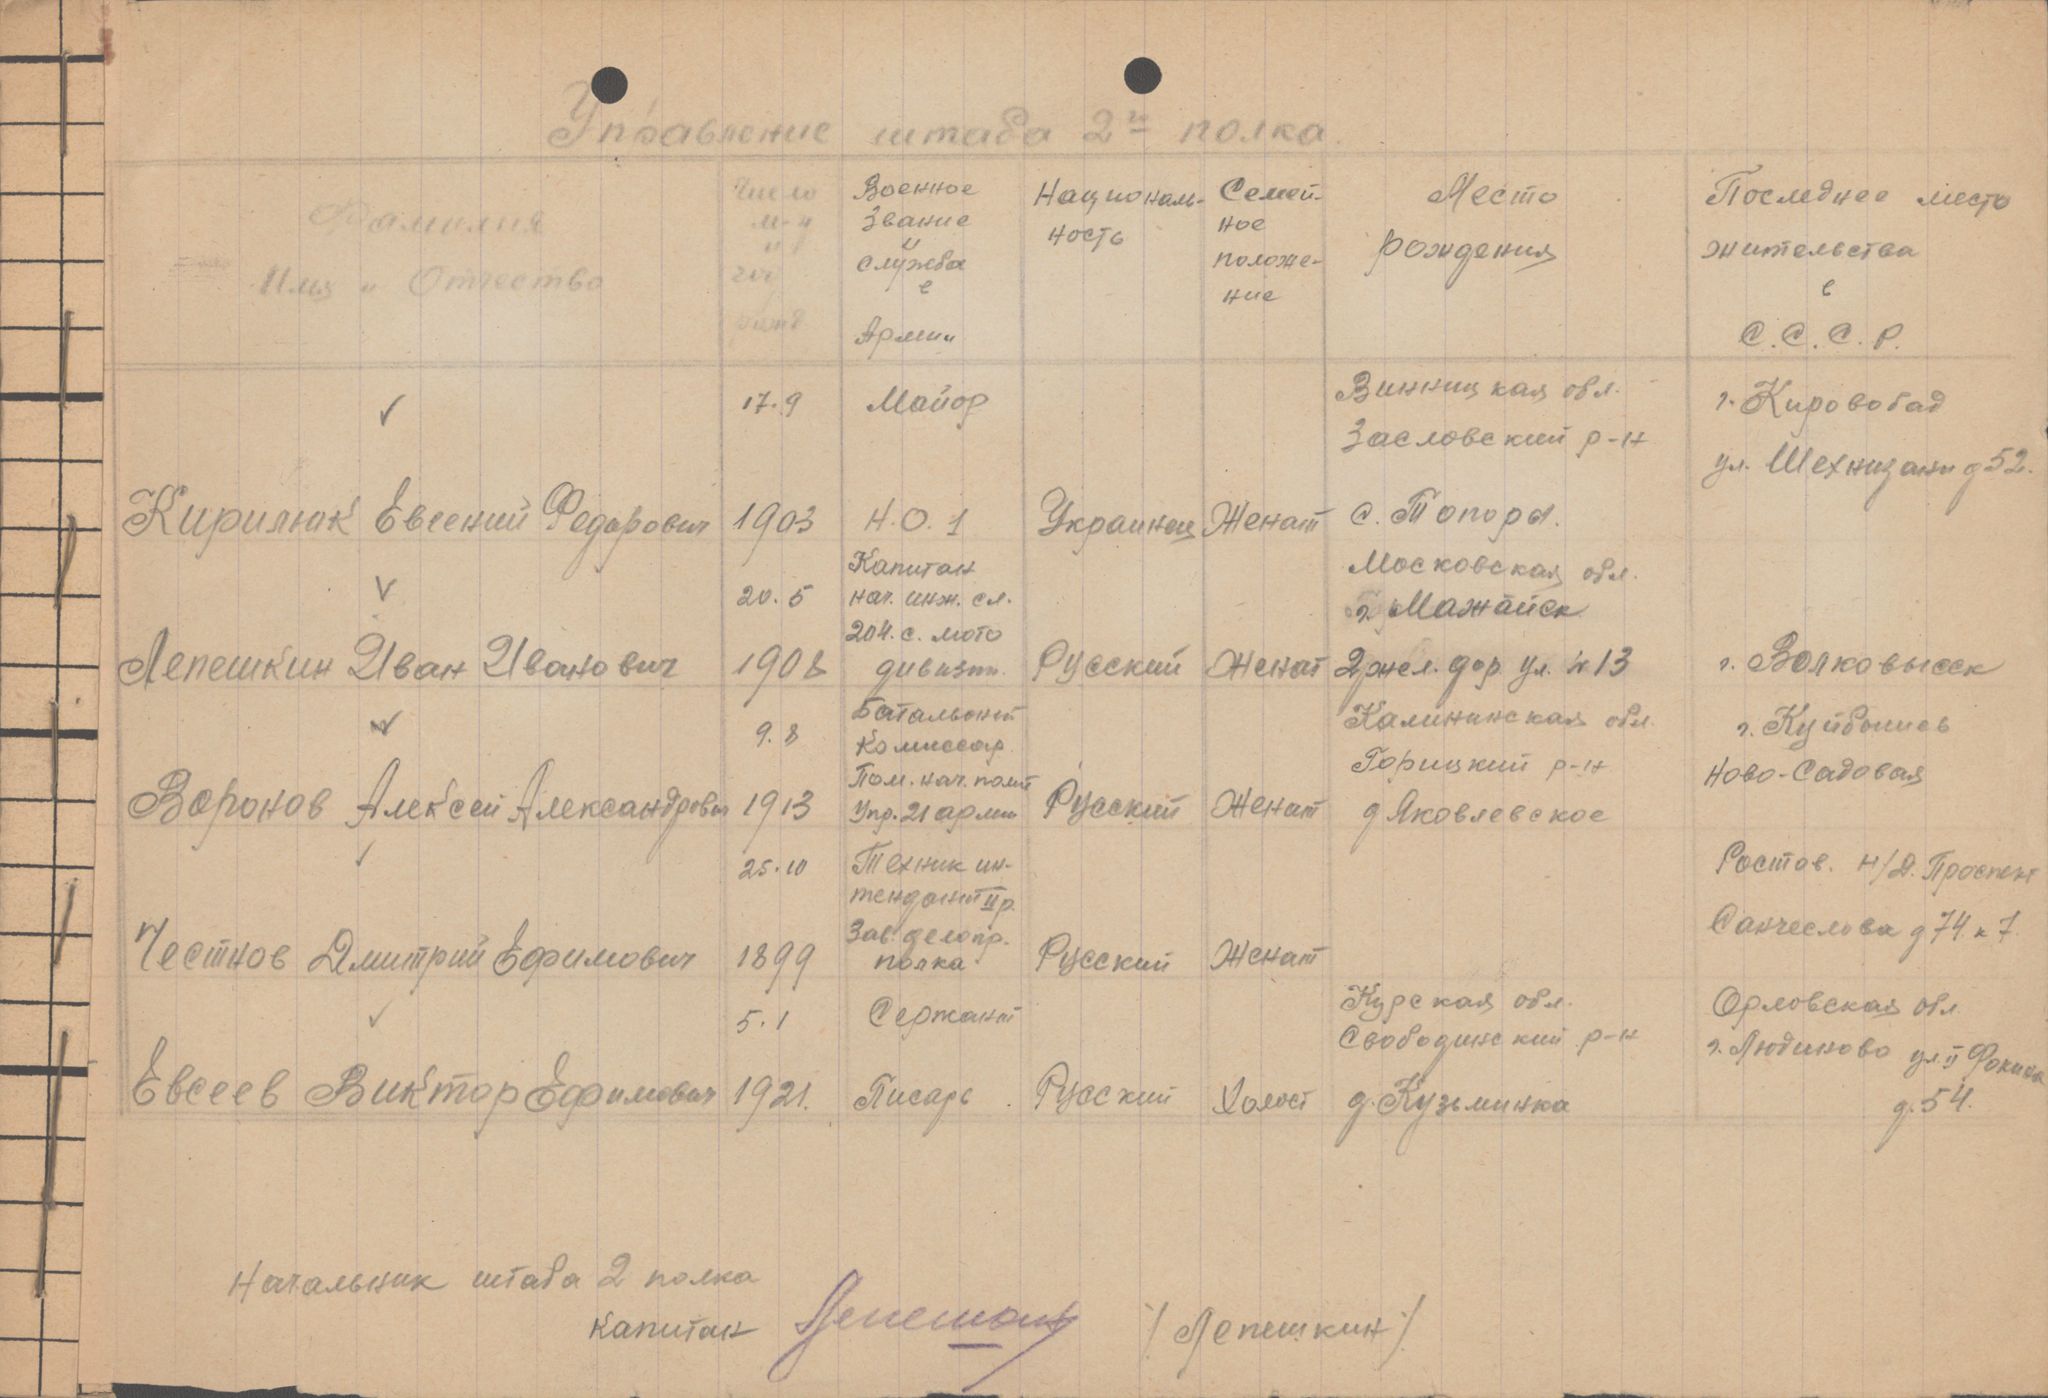 Управление штаба 2го полка.
Фамилия
Имя и Отчество
Число
м-ц
и
год
рожд
Военное
Звание
и
служба
в
Армии
Националь-
ность
Семей-
ное
положе-
ние
Место
рождения
Последнее место
жительства
в
С.С.С.Р.
✓
Кирилюк Евгений Федорович
17.9
1903
Майор
Н.О.1
Украинец
Женат
Винницкая обл.
Засловский р-н
с. Топоры.
г. Кировобад
ул. д 52.
✓
Лепешкин Иван Иванович
20.5
1908
Капитан
нач. инж. сл.
204.с. мото
дивизии.
Русский
Женат
Московская обл.
г. Мажайск
2 жел. дор. ул. № 13
г. Волковысск
✓
Воронов Алексей Александрович
9.8
1913
Батальоный
Комиссар.
Пом. нач. полит
Упр. 21 армии
Русский
Женат
Калининская обл.
Горицкий р-н
д Яковлевское
г. Куйбышев
Ново-Садовая
✓
Честнов Дмитрий Ефимович
25.10
1899
Техник ин-
тендант II р.
Зав. делопр.
полка
Русский
Женат
Ростов. н/Д. Проспект
д 74 к 7.
✓
Евсеев Виктор Ефимович
5.1
1921.
Сержант
Писарь
Русский
Холост
Курская обл.
Свободинский р-н
д. Кузьминка
Орловская обл.
г. Людиново ул. II Фокина
д. 54.
Начальник штаба 2 полка
капитан
/Лепешкин/